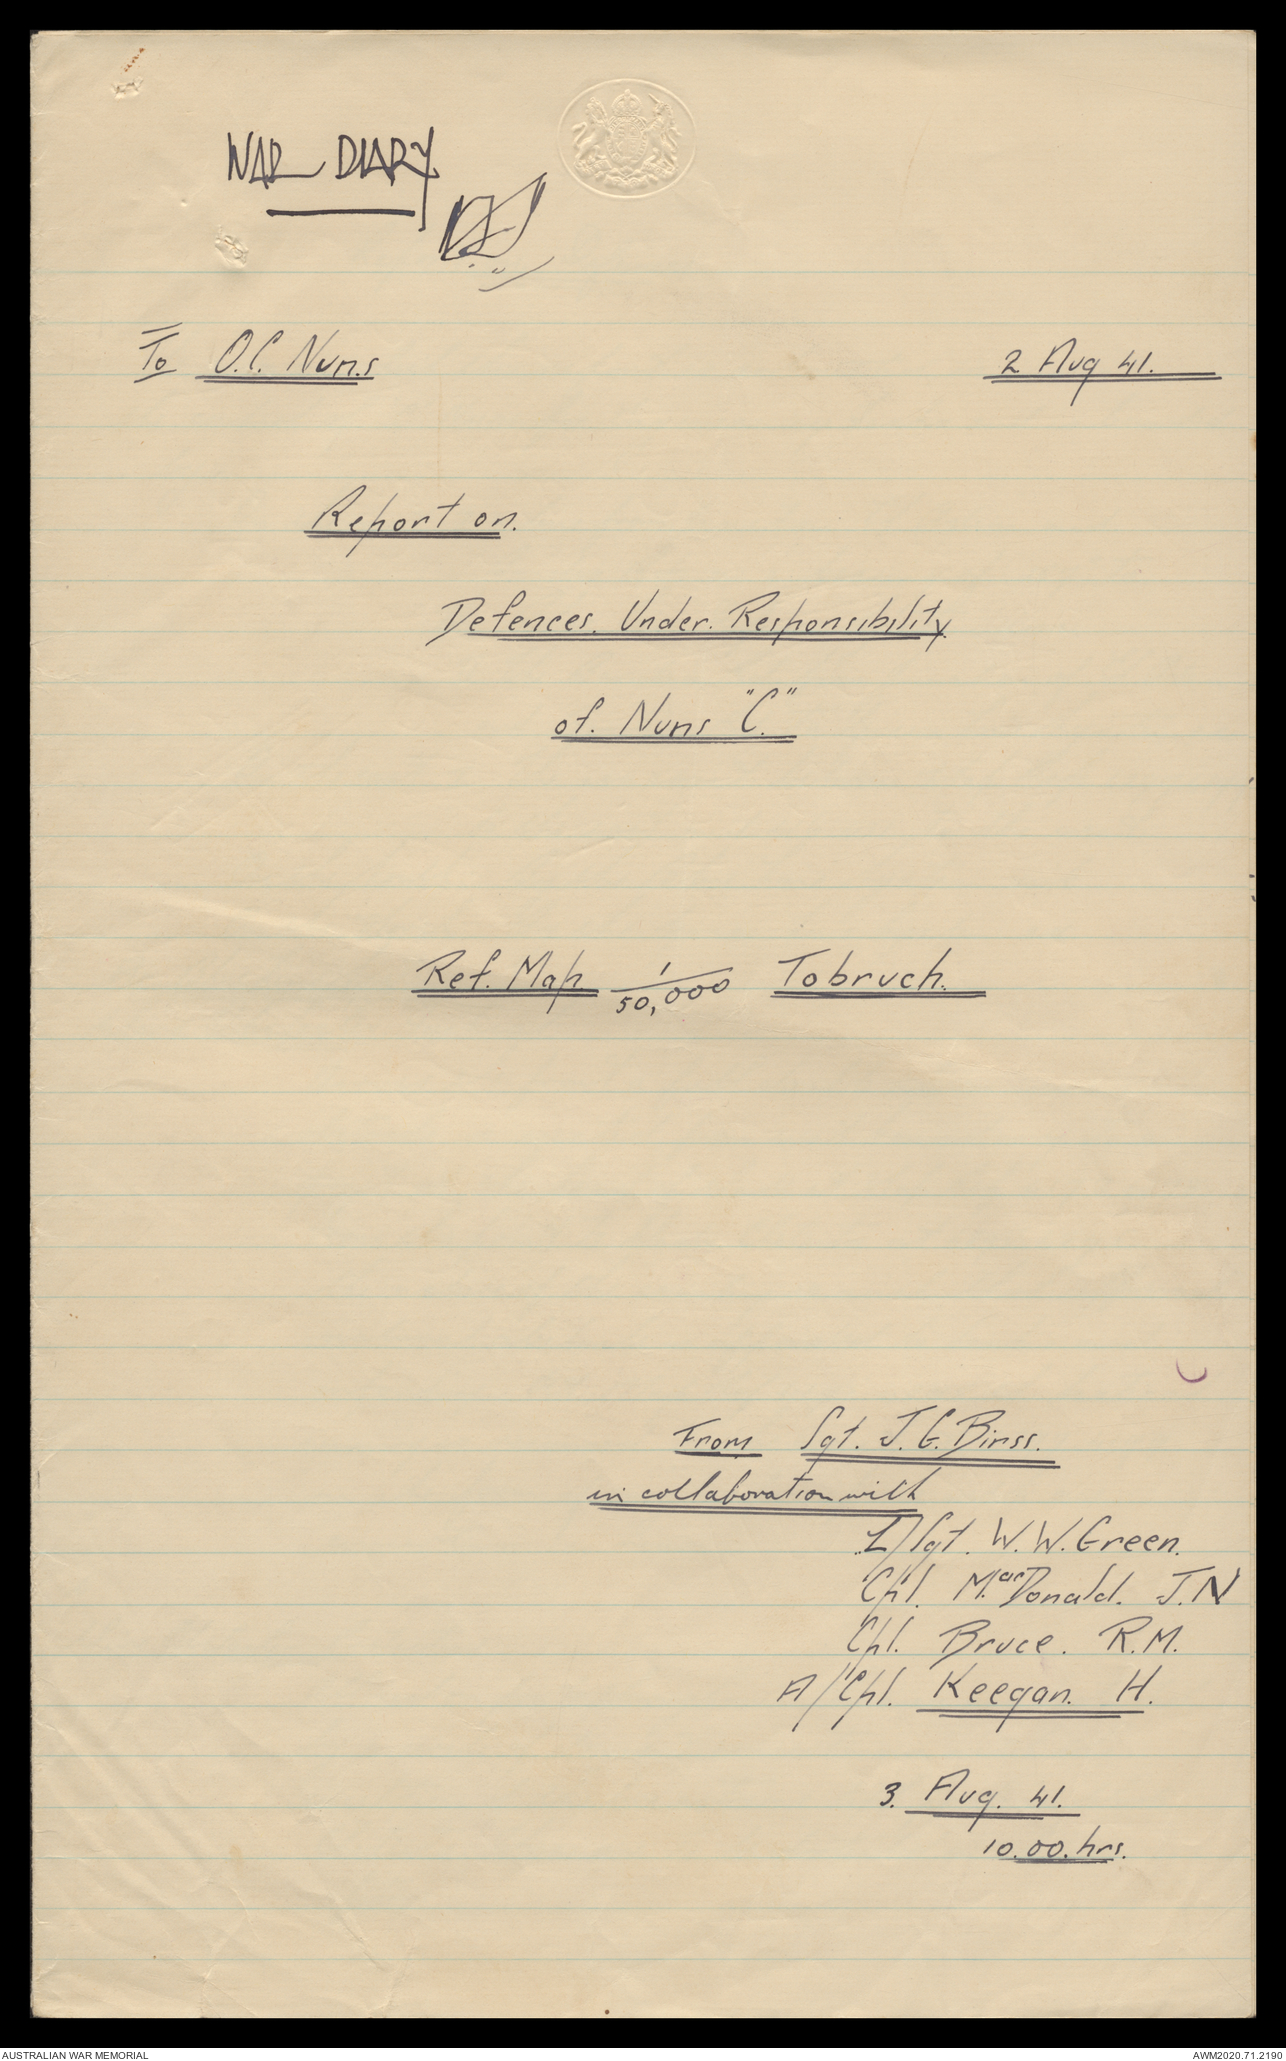 WAR DIARY
To O.C. Nuns
2 Aug 41.
Report on.
Defences. Under. Responsibility
of. Nuns "C."
Ref. Map. 1/50,000 Tobruch.
From Sgt. J. G. Binss.
in collaboration with
L/Sgt. W. W. Green.
Cpl. MacDonald. J. N
Cpl. Bruce. R. M.
A/Cpl. Keegan. H.
3. Aug. 41.
10.00. hrs.
AUSTRALIAN WAR MEMORIAL
AWM2020.71.2190